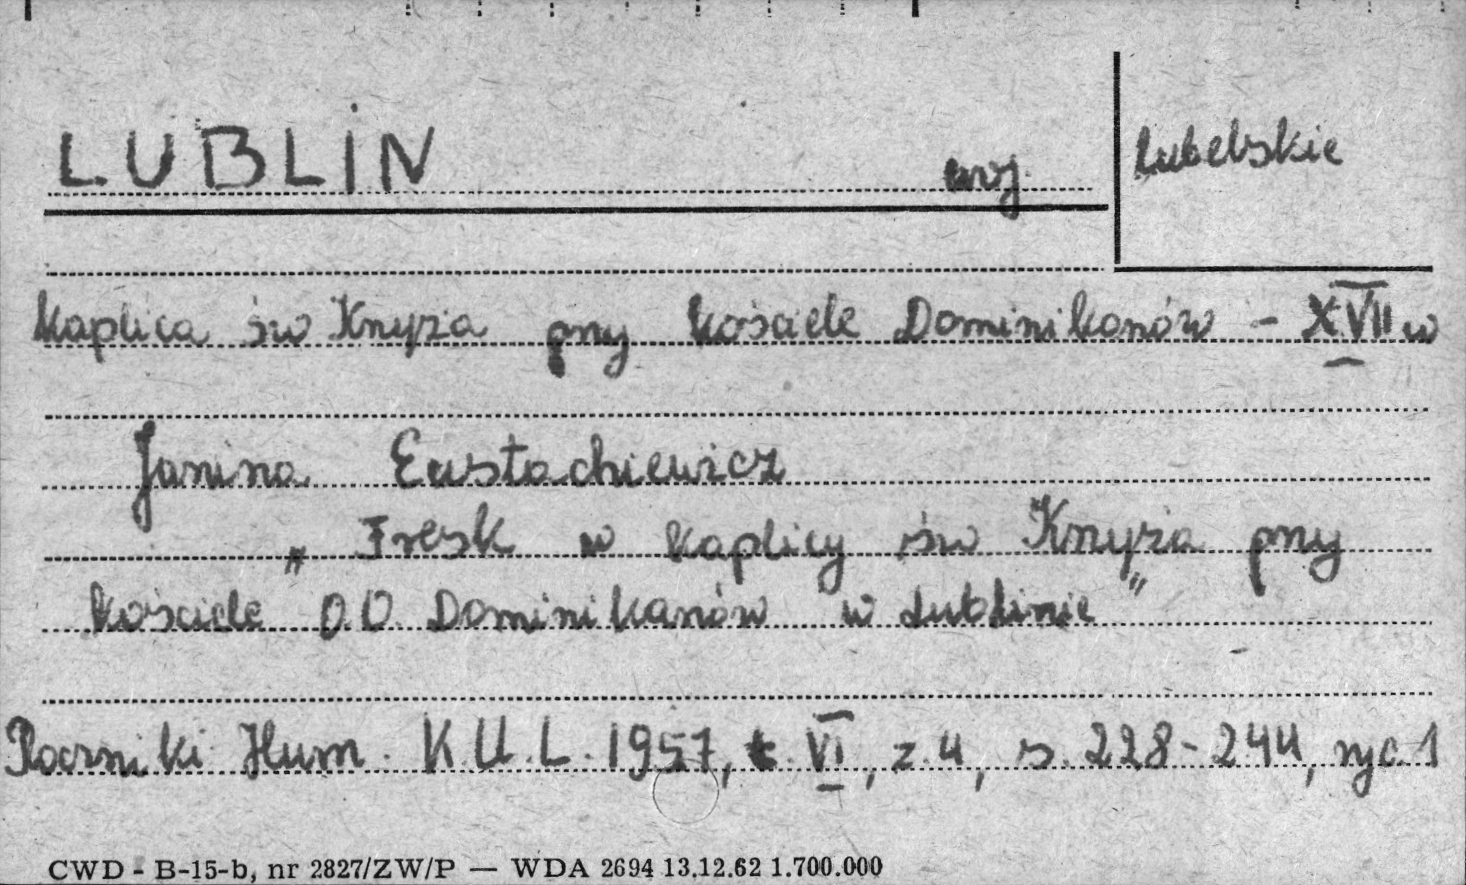 LUBLIN woj. lubelskie
Kaplica św Krzyża przy kościele Dominikanów - XVII w
Janina Eustachiewicz
„Fresk w kaplicy św Krzyża przy
kościele OO Dominikanów w Lublinie”
Roczniki Hum. K.U.L. 1957, t. VI, z. 4, s. 228-244, ryc. 1
CWD - B-15-b, nr 2827/ZW/P — WDA 2694 13.12.62 1.700.000